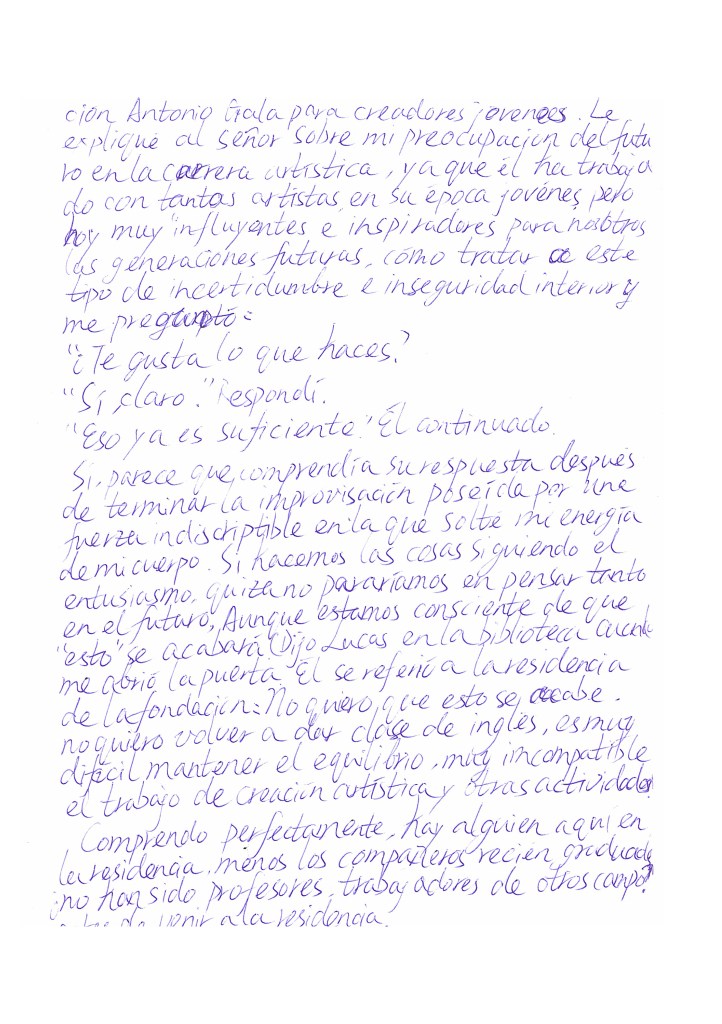 ción Antonio Gala para creadores jovenes. Le
expliqué al señor sobre mi preocupación del futu
ro en la carrera artística, ya que él ha trabaja
do con tantos artistas en su época jovénes pero
hoy muy influyentes e inspiradores para nosotros
las generaciones futuras, cómo tratar a este
tipo de incertidumbre e inseguridad interior y
me preguntó:
"¿Te gusta lo que haces?
"Sí, claro." Respondí.
"Eso ya es suficiente." Él continuado.
Sí, parece que comprendía su respuesta después
de terminar la improvisación poseída por una
fuerza indiscriptible en la que solté mi energía
de mi cuerpo. Si hacemos las cosas siguiendo el
entusiasmo, quiza no pararíamos en pensar tanto
en el futuro, Aunque estamos consciente de que
"esto" se acabará (Dijo Lucas en la biblioteca cuando
me abrió la puerta. Él se referió a la residencia
de la fondación: No quiero que esto se acabe.
no quiero volver a dar clase de inglés, es muy
difícil mantener el equilibrio, muy imcompatible
el trabajo de creación artística y otras actividades.
Comprendo perfectamente, hay alguien aquí en
la residencia, menos los compañeros recién graduado
¿no han sido profesores, trabajadores de otros campo?
de venir a la residencia.